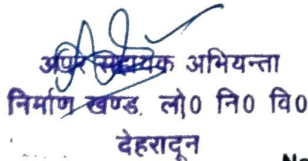 अपर सहायक अभियन्ता
निर्माण खण्ड, लो0 नि0 वि0
देहरादून